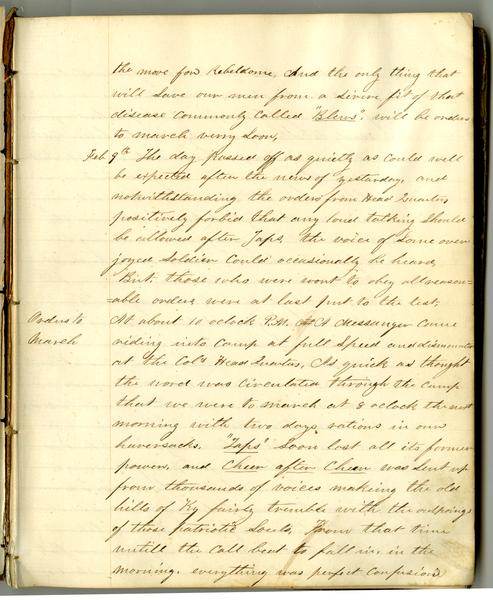 the move for Rebeldome, And the only thing that
will save our men from a sivire fit of that
disease commonly called "Blews". will be orders
to march verry soon,
Feb 9th The day passed off as quietly as could well
be expected after the news of yesterday, and
notwithstanding the orders from Head Quarters
positively forbid that any loud talking should
be allowed after Taps, the voice of some over
joyed soldier could occasionally be heard,
But, those who were wont to obey all reason=
=able orders were at last put to the test.
Orders to
March
At about 10 oclock P.M. A Messanger came
riding into Camp at full speed and dismounted
at the Col's Head Quarters, As quick as thought
the word was circulated through the camp
that we were to march at 8 oclock the next
morning with two days rations in our
haversacks. "Taps" soon lost all its former
power, and Cheer after Cheer was sent up
from thousands of voices making the old
hills of Ky fairly tremble with the outpoings
of those patriotic souls, From that time
untill the call beat to fall in, in the
morning. everything was perfect confusion